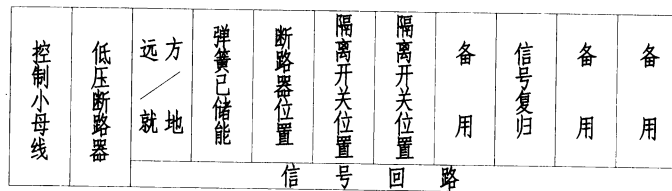 控制小母线
低压断路器
远方／就地
弹簧已储能
断路器位置
隔离开关位置
隔离开关位置
备用
信号复归
备用
备用
信号回路